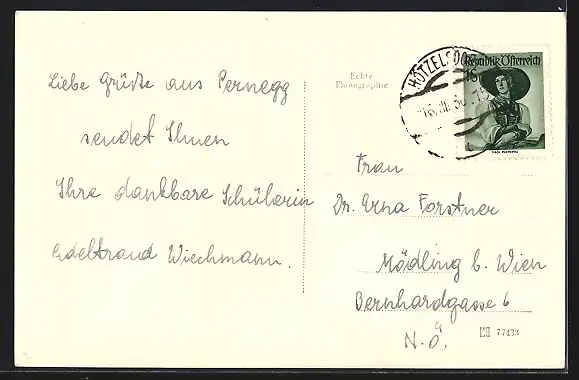 Liebe Grüße aus Pernegg
sendet Ihnen
Ihre dankbare Schülerin
Edeltraud Wiechmann.
Echte
Photographie
HÖTZELSDO
Republik Österreich
Frau
Dr. Erna Forstner
Mödling b. Wien
Bernhardgasse 6
N.Ö.
77433